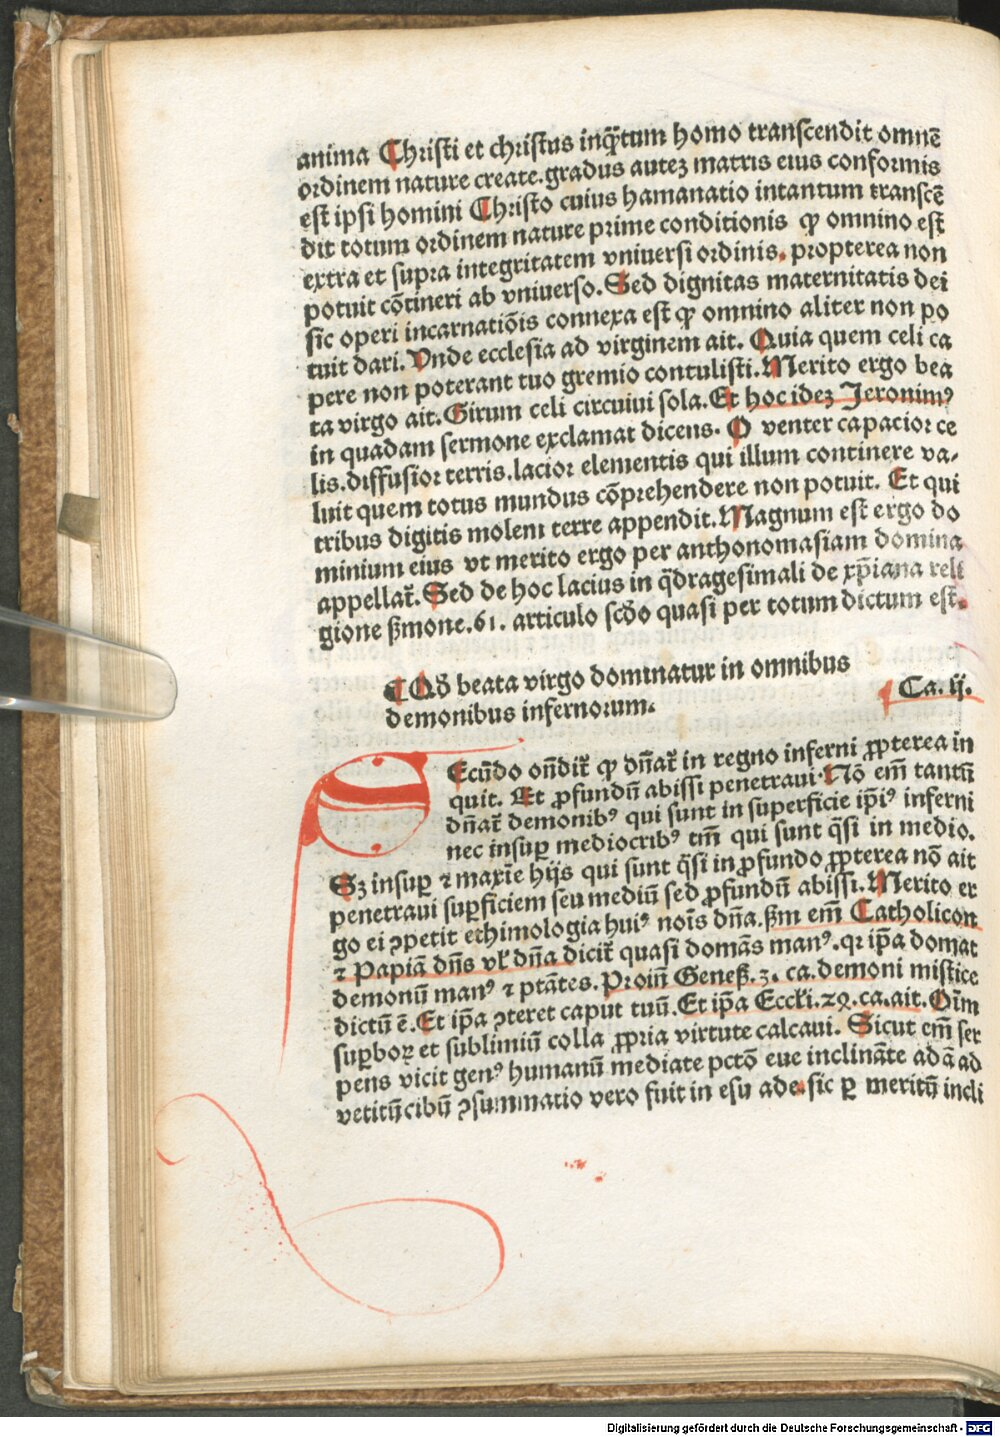 anima Christi et christus inq̃tum homo transcendit omnẽ
ordinem nature create. gradus autez matris eius conformis
est ipsi homini Christo cuius hamanatio intantum transcẽ
dit totum ordinem nature prime conditionis ꝙ omnino est
extra et supra integritatem vniuersi ordinis. propterea non
potuit cõtineri ab vniuerso. Sed dignitas maternitatis dei
sic operi incarnatiõis connexa est ꝙ omnino aliter non po
tuit dari. Unde ecclesia ad virginem ait. Quia quem celi ca
pere non poterant tuo gremio contulisti. Merito ergo bea
ta virgo ait. Girum celi circuiui sola. Et hoc idez Jeronimꝰ
in quadam sermone exclamat dicens. O venter capacior ce
lis. diffusior terris. lacior elementis qui illum continere va-
luit quem totus mundus cõprehendere non potuit. Et qui
tribus digitis molem terre appendit. Magnum est ergo do
minium eius vt merito ergo per anthonomasiam domina
appellat̃. Sed de hoc lacius in q̃dragesimali de xp̃iana reli
gione ẞmone. 61. articulo scd̃o quasi per totum dictum est.
¶ Qd̃ beata virgo dominatur in omnibus
demonibus infernorum.
Ca. ij.
Ecũdo oñdit̃ ꝙ dñat̃ in regno inferni ꝓpterea in
quit. Et ꝓfundũ abissi penetraui. Nõ em̃ tantũ
dñat̃ demonibꝰ qui sunt in superficie ip̃iꝰ inferni
nec insuꝑ mediocribꝰ tm̃ qui sunt q̃si in medio.
Sz insuꝑ ⁊ maxĩe hijs qui sunt q̃si in ꝓfundo ꝓpterea nõ ait
penetraui suꝑficiem seu mediũ sed ꝓfundũ abissi. Merito er
go ei ꝯpetit ethimologia huiꝰ noĩs dña. ẞm em̃ Catholicon
⁊ Papiã dñs vl̃ dña dicit̃ quasi domãs manꝰ. qꝛ ip̃a domat
demonũ manꝰ ⁊ ptãtes. Proiñ Geneẞ. 3. ca. demoni mistice
dictũ ẽ. Et ip̃a ꝯteret caput tuũ. Et ip̃a Eccl̃i. 24. ca. ait. Oĩm
suꝑboꝝ et sublimiũ colla ꝓpria virtute calcaui. Sicut em̃ ser
pens vicit genꝰ humanũ mediate pctõ eue inclinãte adã ad
vetitũ cibũ ꝯsummatio vero fuit in esu ade. sic ꝑ meritũ incli
Digitalisierung gefördert durch die Deutsche Forschungsgemeinschaft - DFG